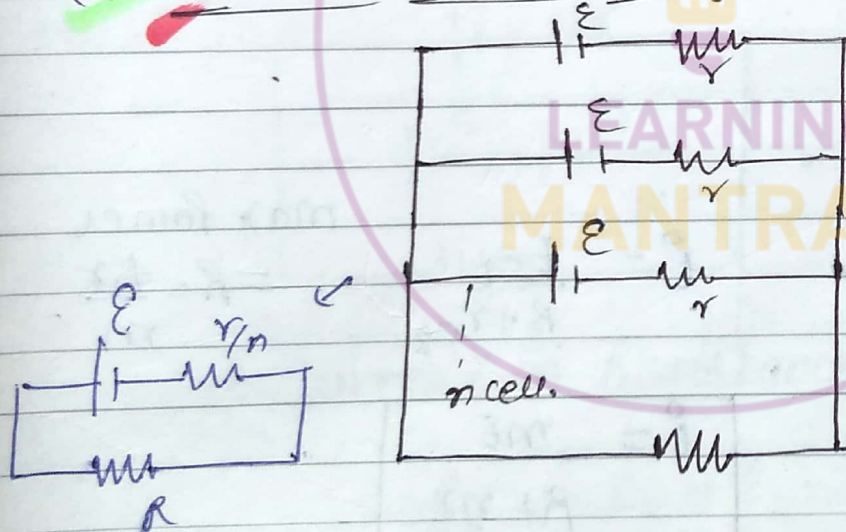 ε
r
LEARNIN
ε
r
MANTRA
ε
r
n cell.
ε
r/n
R